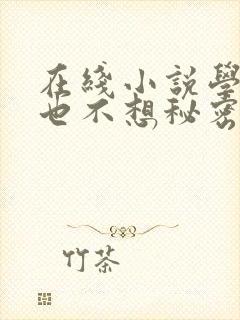 在綫小説學
也不想秘密
竹茶